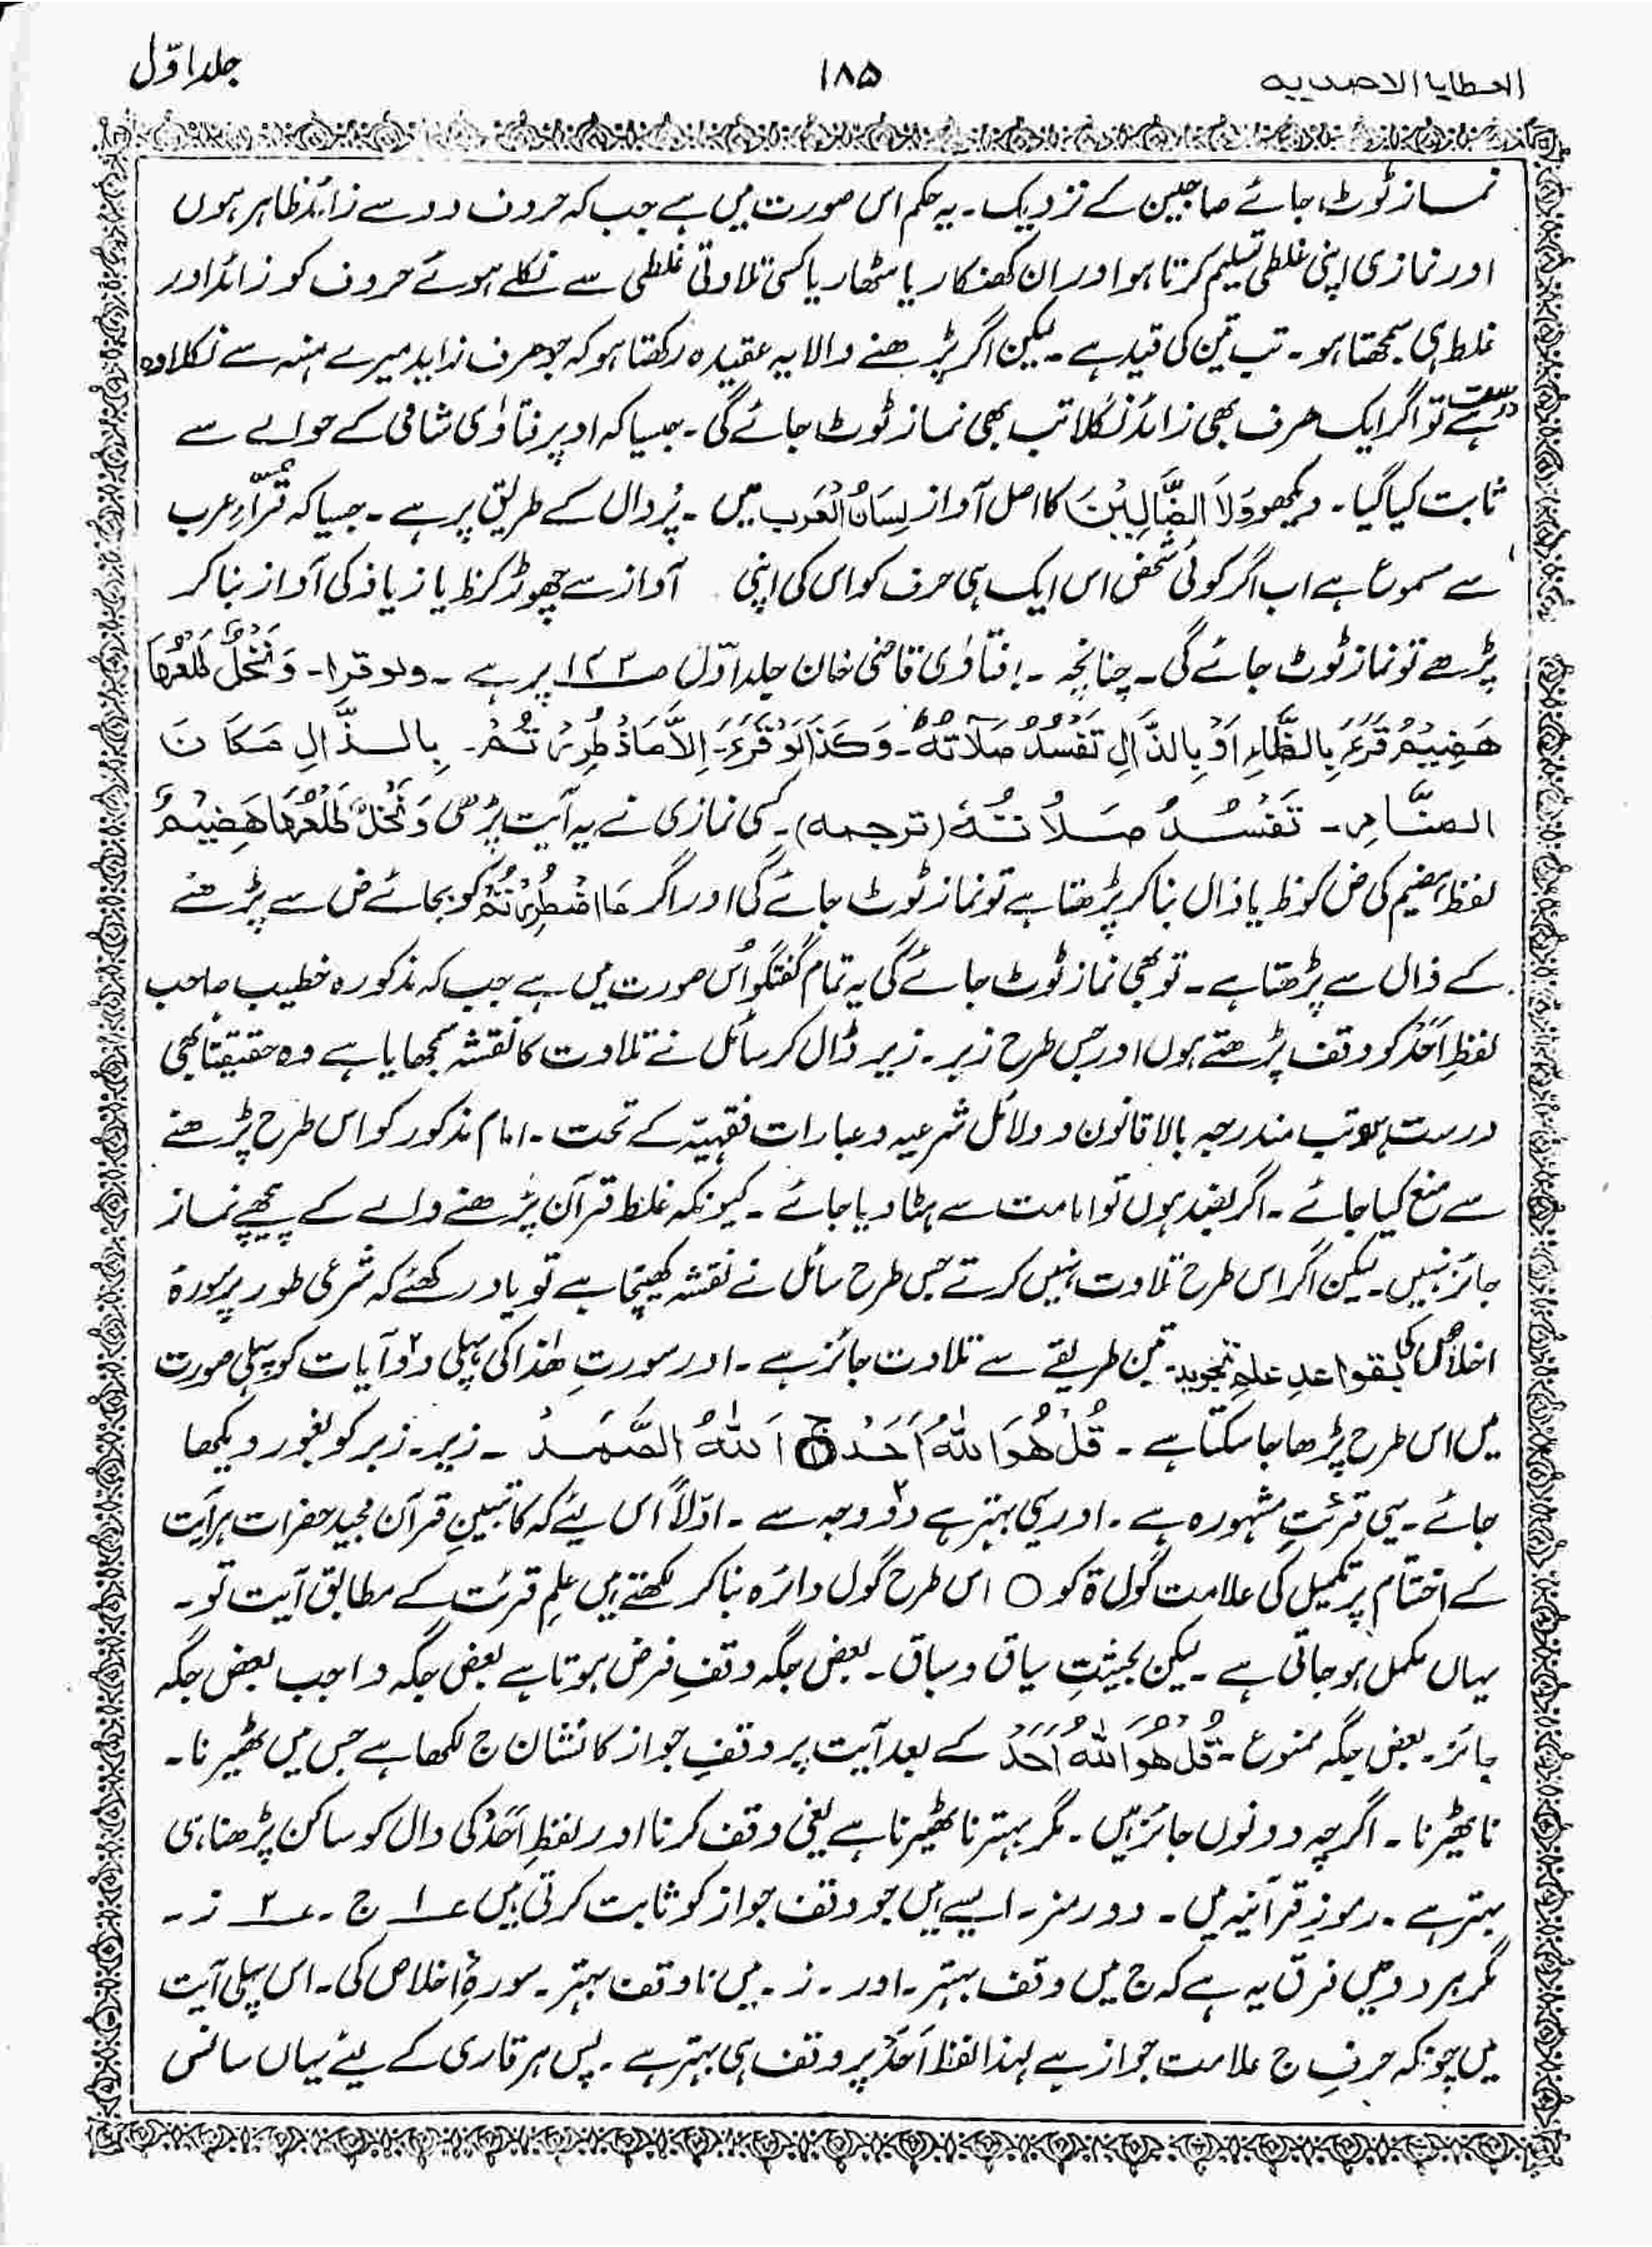 العطایا الاحمدیہ ۱۸۵ جلد اوّل
نماز ٹوٹ جائے صاحبین کے نزدیک۔ یہ حکم اس صورت میں ہے جب کہ حروف دو سے زائد ظاہر ہوں
اور نمازی اپنی غلطی تسلیم کرتا ہو اور ان کھنکار یا مٹھار یا کسی تلاوتی غلطی سے نکلے ہوئے حروف کو زائد اور
غلط ہی سمجھتا ہو۔ تب تین کی قید ہے۔ لیکن اگر پڑھنے والا یہ عقیدہ رکھتا ہو کہ جو حرف زاید میرے منہ سے نکلا وہ
درست ہے تو اگر ایک حرف بھی زائد نکلا تب بھی نماز ٹوٹ جائے گی۔ جیسا کہ اوپر فتاوٰی شامی کے حوالے سے
ثابت کیا گیا۔ دیکھو وَلَا الضَّالِّیْنَ کا اصل آواز لِسَانُ الْعَرَب میں۔ پُر دال کے طریق پر ہے۔ جیسا کہ قُرّاءِ عرب
سے مسموع ہے اب اگر کوئی شخص اس ایک ہی حرف کو اس کی اپنی آواز سے چھوڑ کر ظ یا ز یا ذ کی آواز بنا کر
پڑھے تو نماز ٹوٹ جائے گی۔ چنانچہ۔ فتاوٰی قاضی خان جلد اوّل صـ پر ہے۔ ولو قرا۔ وَنَخْلٌ طَلْعُهَا
هَضِيْمٌ قَرَءَ بِالظَّاءِ اَوْ بِالذَّالِ تَفْسُدُ صَلَاتُهٗ۔ وَكَذَا لَوْ قَرَءَ۔ اِلَّا مَاذْطُرِرْتُمْ۔ بِالذَّالِ مَكَانَ
الضَّادِ۔ تَفْسُدُ صَلَاتُهٗ (ترجمہ)۔ کسی نمازی نے یہ آیت پڑھی وَنَخْلٌ طَلْعُهَا هَضِيْمٌ
لفظ ہضیم کی ض کو ظ یا ذال بنا کر پڑھتا ہے تو نماز ٹوٹ جائے گی اور اگر مَا اضْطُرِرْتُمْ کو بجائے ض سے پڑھنے
کے ذال سے پڑھتا ہے۔ تو بھی نماز ٹوٹ جائے گی یہ تمام گفتگو اُس صورت میں ہے جب کہ مذکورہ خطیب صاحب
لفظِ اَحَدْ کو وقف پڑھتے ہوں اور جس طرح زبر۔ زیر ڈال کر سائل نے تلاوت کا نقشہ سمجھایا ہے وہ حقیقتاً بھی
درست ہو تب مندرجہ بالا قانون و دلائل شرعیہ و عبارات فقہیہ کے تحت۔ امام مذکور کو اس طرح پڑھنے
سے منع کیا جائے۔ اگر بضد ہوں تو امامت سے ہٹا دیا جائے۔ کیونکہ غلط قرآن پڑھنے والے کے پیچھے نماز
جائز نہیں۔ لیکن اگر اس طرح تلاوت نہیں کرتے جس طرح سائل نے نقشہ کھینچا ہے تو یاد رکھئے کہ شرعی طور پر سورۃ
اخلاص کی بقواعدِ علمِ تجوید۔ تین طریقے سے تلاوت جائز ہے۔ اور سورتِ ھٰذا کی پہلی دو۲ آیات کو پہلی صورت
میں اس طرح پڑھا جا سکتا ہے۔ قُلْ هُوَ اللّٰهُ اَحَدْ ۝ج اَللّٰهُ الصَّمَدُ ۔ زیر۔ زبر کو بغور دیکھا
جائے۔ یہی قرئتِ مشہورہ ہے۔ اور یہی بہتر ہے دو۲ وجہ سے۔ اوّلاً اس لیئے کہ کاتبینِ قرآن مجید حضرات ہر آیت
کے اختتام پر تکمیل کی علامت گول ۃ کو ○ اس طرح گول دائرہ بنا کر لکھتے ہیں علمِ قرئت کے مطابق آیت تو۔
یہاں مکمل ہو جاتی ہے۔ لیکن بحیثیتِ سیاق و سباق۔ بعض جگہ وقفِ فرض ہوتا ہے بعض جگہ واجب بعض جگہ
جائز۔ بعض جگہ ممنوع۔ قُلْ هُوَ اللّٰهُ اَحَدْ کے بعد آیت پر وقفِ جواز کا نشان ج لکھا ہے جس میں ٹھیرنا۔
نا ٹھیرنا۔ اگرچہ دونوں جائز ہیں۔ مگر بہتر نا ٹھیرنا ہے یعنی وقف کرنا اور لفظِ اَحَدْ کی دال کو ساکن پڑھنا ہی
بہتر ہے۔ رموزِ قرآنیہ میں۔ دو رمز۔ ایسے ہیں جو وقف جواز کو ثابت کرتی ہیں ۱ ج۔ ۲ ز۔
مگر ہر دو میں فرق یہ ہے کہ ج میں وقف بہتر۔ اور۔ ز۔ میں نا وقف بہتر۔ سورۂ اخلاص کی۔ اس پہلی آیت
میں چونکہ حرفِ ج علامت جواز ہے لہٰذا لفظ اَحَدْ پر وقف ہی بہتر ہے۔ پس ہر قاری کے لیئے یہاں سانس